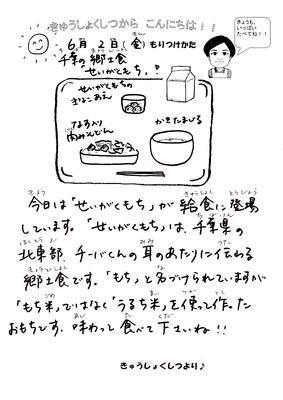 きゅうしょくしつから こんにちは!!
きょうも、
いっぱい
たべてね!!
6月 2日(金) もりつけかた
千葉の郷土食
"せいがくもち"!
せいがくもちの
きなこあえ
なす入り
肉みそどん
かきたまじる
今日は「せいがくもち」が 給食に登場
しています。「せいがくもち」は、千葉県の
北東部、チーバくんの耳のあたりに伝わる
郷土食です。「もち」と名づけられていますが
「もち米」ではなく「うるち米」を使って作った
おもちです。味わって食べて下さいね!!
きゅうしょくしつより♪